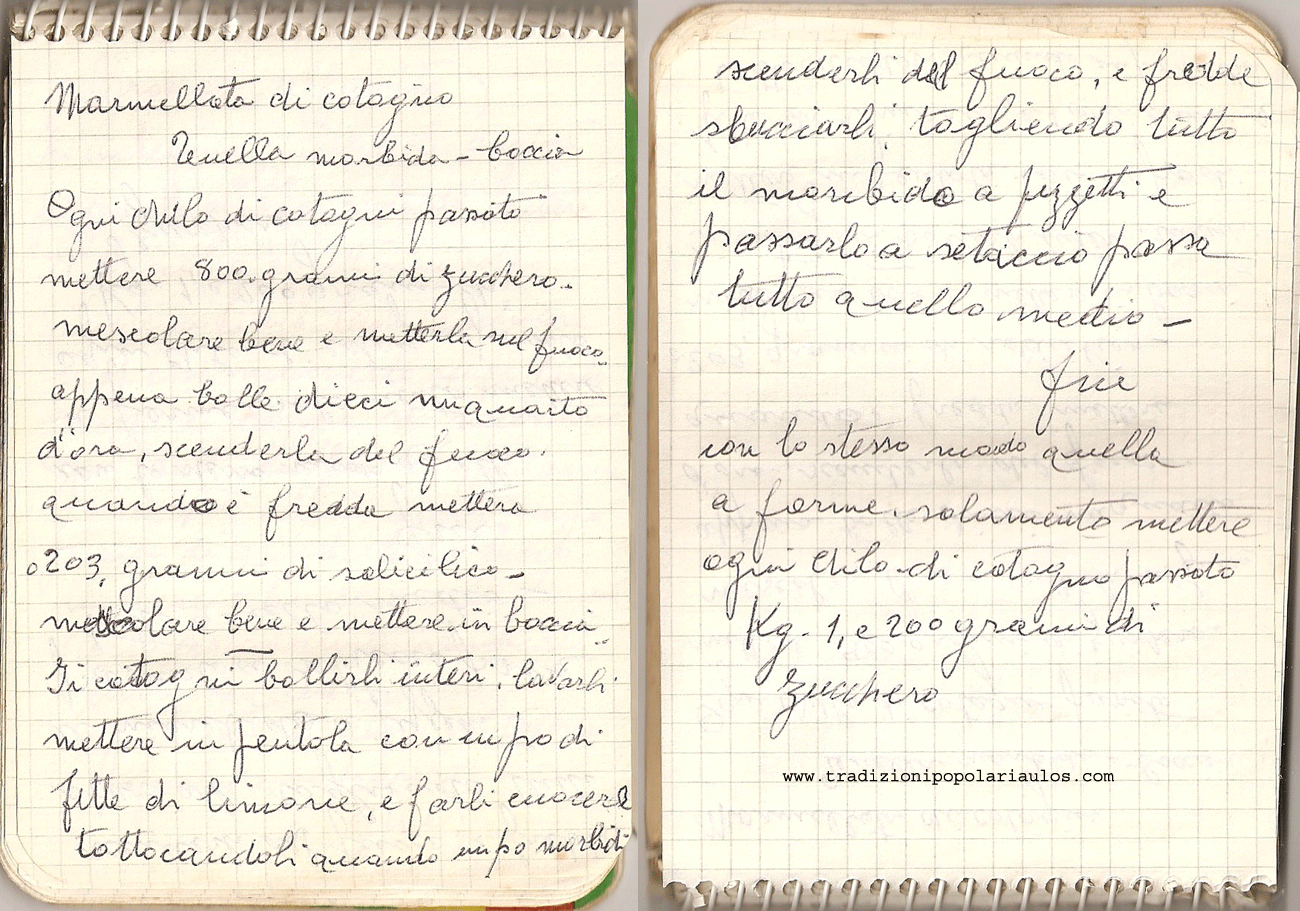 Marmellata di cotogno
Quella morbida - boccia
Ogni chilo di cotogni passato
mettere 800 grami di zucchero.
mescolare bene e metterla nel fuoco.
appena bolle dieci un quarto
d'ora, scenderla del fuoco.
quando è fredda mettera
o 2 o 3, grammi di salicilico -
mescolare bene e mettere in boccia.
I cotogni bollirli interi, lavarli
mettere in pentola con un po di
fette di limone, e farli cuocere
tottocandoli quando un po morbidi
scenderli dal fuoco, e fredde
sbucciarli, togliendo tutto
il morbido a pezzetti e
passarlo a setaccio passa
tutto quello medio -
fine
con lo stesso modo quella
a forme. solamento mettere
ogni chilo di cotogno passato
Kg. 1, e 200 grami di
zucchero
www.tradizionipopolariaulos.com